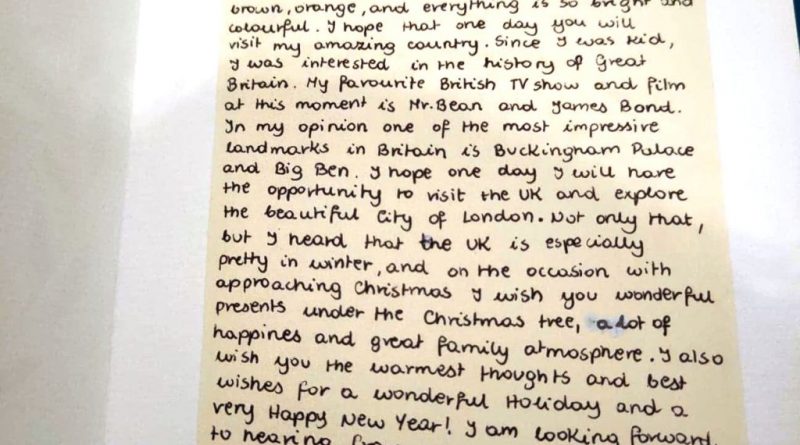 brown, orange, and everything is so bright and
colourful. I hope that one day you will
visit my amazing country. Since I was kid,
I was interested in the history of Great
Britain. My favourite British TV show and film
at this moment is Mr. Bean and James Bond.
In my opinion one of the most impressive
landmarks in Britain is Buckingham Palace
and Big Ben. I hope one day I will have
the opportunity to visit the UK and explore
the beautiful City of London. Not only that,
but I heard that the UK is especially
pretty in winter, and on the occasion with
approaching Christmas I wish you wonderful
presents under the Christmas tree, a lot of
happines and great family atmosphere. I also
wish you the warmest thoughts and best
wishes for a wonderful Holiday and a
very Happy New Year! I am looking forward
to hearing